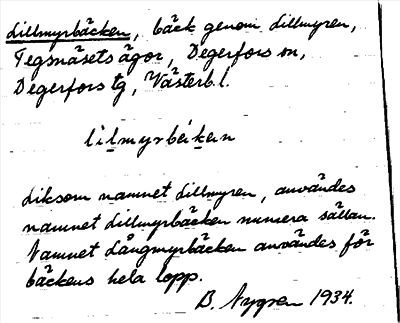 Lillmyrbäcken, bäck genom Lillmyren,
Tegsnäsets ägor, Degerfors sn,
Degerfors tg, Västerb.l.
lilmyrbeiken
Liksom namnet Lillmyren, användes
namnet Lillmyrbäcken numera sällan.
Namnet Långmyrbäcken användes för
bäckens hela lopp.
B. Nygren 1934.